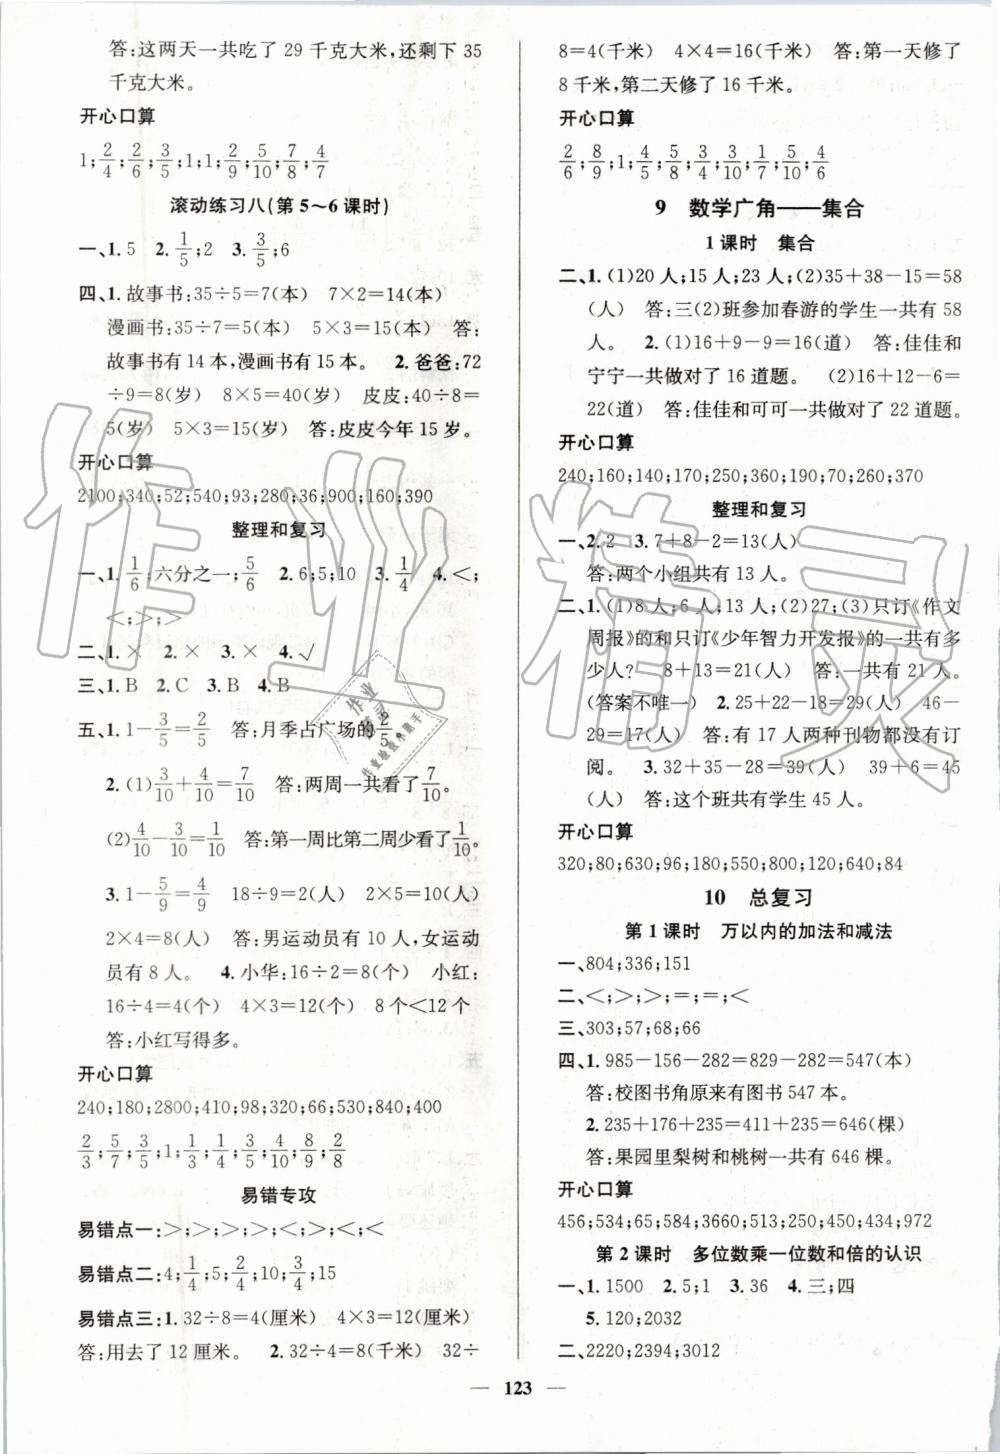 答:这两天一共吃了 29 千克大米,还剩下 35
千克大米。
开心口算
1;2/4;2/6;3/5;1;1;2/9;5/10;7/8;4/7
滚动练习八(第 5~6 课时)
一、1. 5 2. 1/5;2 3. 3/5;6
四、1. 故事书:35÷5=7(本) 7×2=14(本)
漫画书:35÷7=5(本) 5×3=15(本) 答:
故事书有 14 本,漫画书有 15 本。 2. 爸爸:72
÷9=8(岁) 8×5=40(岁) 皮皮:40÷8=
5(岁) 5×3=15(岁) 答:皮皮今年 15 岁。
开心口算
2100;340;52;540;93;280;36;900;160;390
整理和复习
一、1. 1/6;六分之一;5/6 2. 6;5;10 3. 1/4 4. <;
<;>;>
二、1. × 2. × 3. × 4. √
三、1. B 2. C 3. B 4. B
五、1. 1-3/5=2/5 答:月季占广场的2/5。
2. (1)3/10+4/10=7/10 答:两周一共看了7/10。
(2)4/10-3/10=1/10 答:第一周比第二周少看了1/10。
3. 1-5/9=4/9 18÷9=2(人) 2×5=10(人)
2×4=8(人) 答:男运动员有 10 人,女运动
员有 8 人。 4. 小华:16÷2=8(个) 小红:
16÷4=4(个) 4×3=12(个) 8 个<12 个
答:小红写得多。
开心口算
240;180;2800;410;98;320;66;530;840;400
2/3;5/7;3/5;1;1/3;1/4;3/5;4/10;8/9;2/8
易错专攻
易错点一:>;>;>;>;<;>;<;<
易错点二:4;1/4;5;2/4;10;3/4;15
易错点三:1. 32÷8=4(厘米) 4×3=12(厘米)
答:用去了 12 厘米。 2. 32÷4=8(千米) 32÷
8=4(千米) 4×4=16(千米) 答:第一天修了
8 千米,第二天修了 16 千米。
开心口算
2/6;8/9;1;4/5;3/8;3/4;1/7;5/10;4/6
9 数学广角——集合
1 课时 集合
二、1. (1)20 人;15 人;23 人;(2)35+38-15=58
(人) 答:三(2)班参加春游的学生一共有 58
人。 2. (1)16+9-9=16(道) 答:佳佳和
宁宁一共做对了 16 道题。 (2)16+12-6=
22(道) 答:佳佳和可可一共做对了 22 道题。
开心口算
240;160;140;170;250;360;190;70;260;370
整理和复习
一、2. 2 3. 7+8-2=13(人)
答:两个小组共有 13 人。
二、1. (1)8 人;6 人;13 人;(2)27;(3)只订《作文
周报》的和只订《少年智力开发报》的一共有多
少人? 8+13=21(人) 答:一共有 21 人。
(答案不唯一) 2. 25+22-18=29(人) 46-
29=17(人) 答:有 17 人两种刊物都没有订
阅。 3. 32+35-28=39(人) 39+6=45
(人) 答:这个班共有学生 45 人。
开心口算
320;80;630;96;180;550;800;120;640;84
10 总复习
第 1 课时 万以内的加法和减法
一、804;336;151
二、<;>;>;=;=;<
三、303;57;68;66
四、1. 985-156-282=829-282=547(本)
答:校图书角原来有图书 547 本。
2. 235+176+235=411+235=646(棵)
答:果园里梨树和桃树一共有 646 棵。
开心口算
456;534;65;584;3660;513;250;450;434;972
第 2 课时 多位数乘一位数和倍的认识
一、1. 1500 2. 5;1 3. 36 4. 三;四
5. 120;2032
二、2220;2394;3012
— 123 —
作业精灵